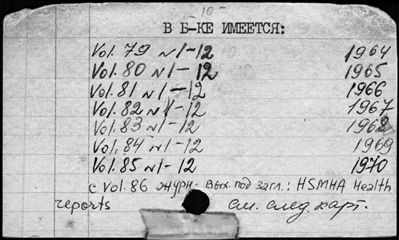 10-
В Б-КЕ ИМЕЕТСЯ:
Vol. 79 N 1-12 1964
Vol. 80 N 1-12 1965
Vol. 81 N 1-12 1966
Vol. 82 N 1-12 1967
Vol. 83 N 1-12 1968
Vol. 84 N 1-12 1969
Vol. 85 N 1-12 1970
с Vol. 86 журн. вых. под загл.: HSMHA Health
reports см. след. карт.